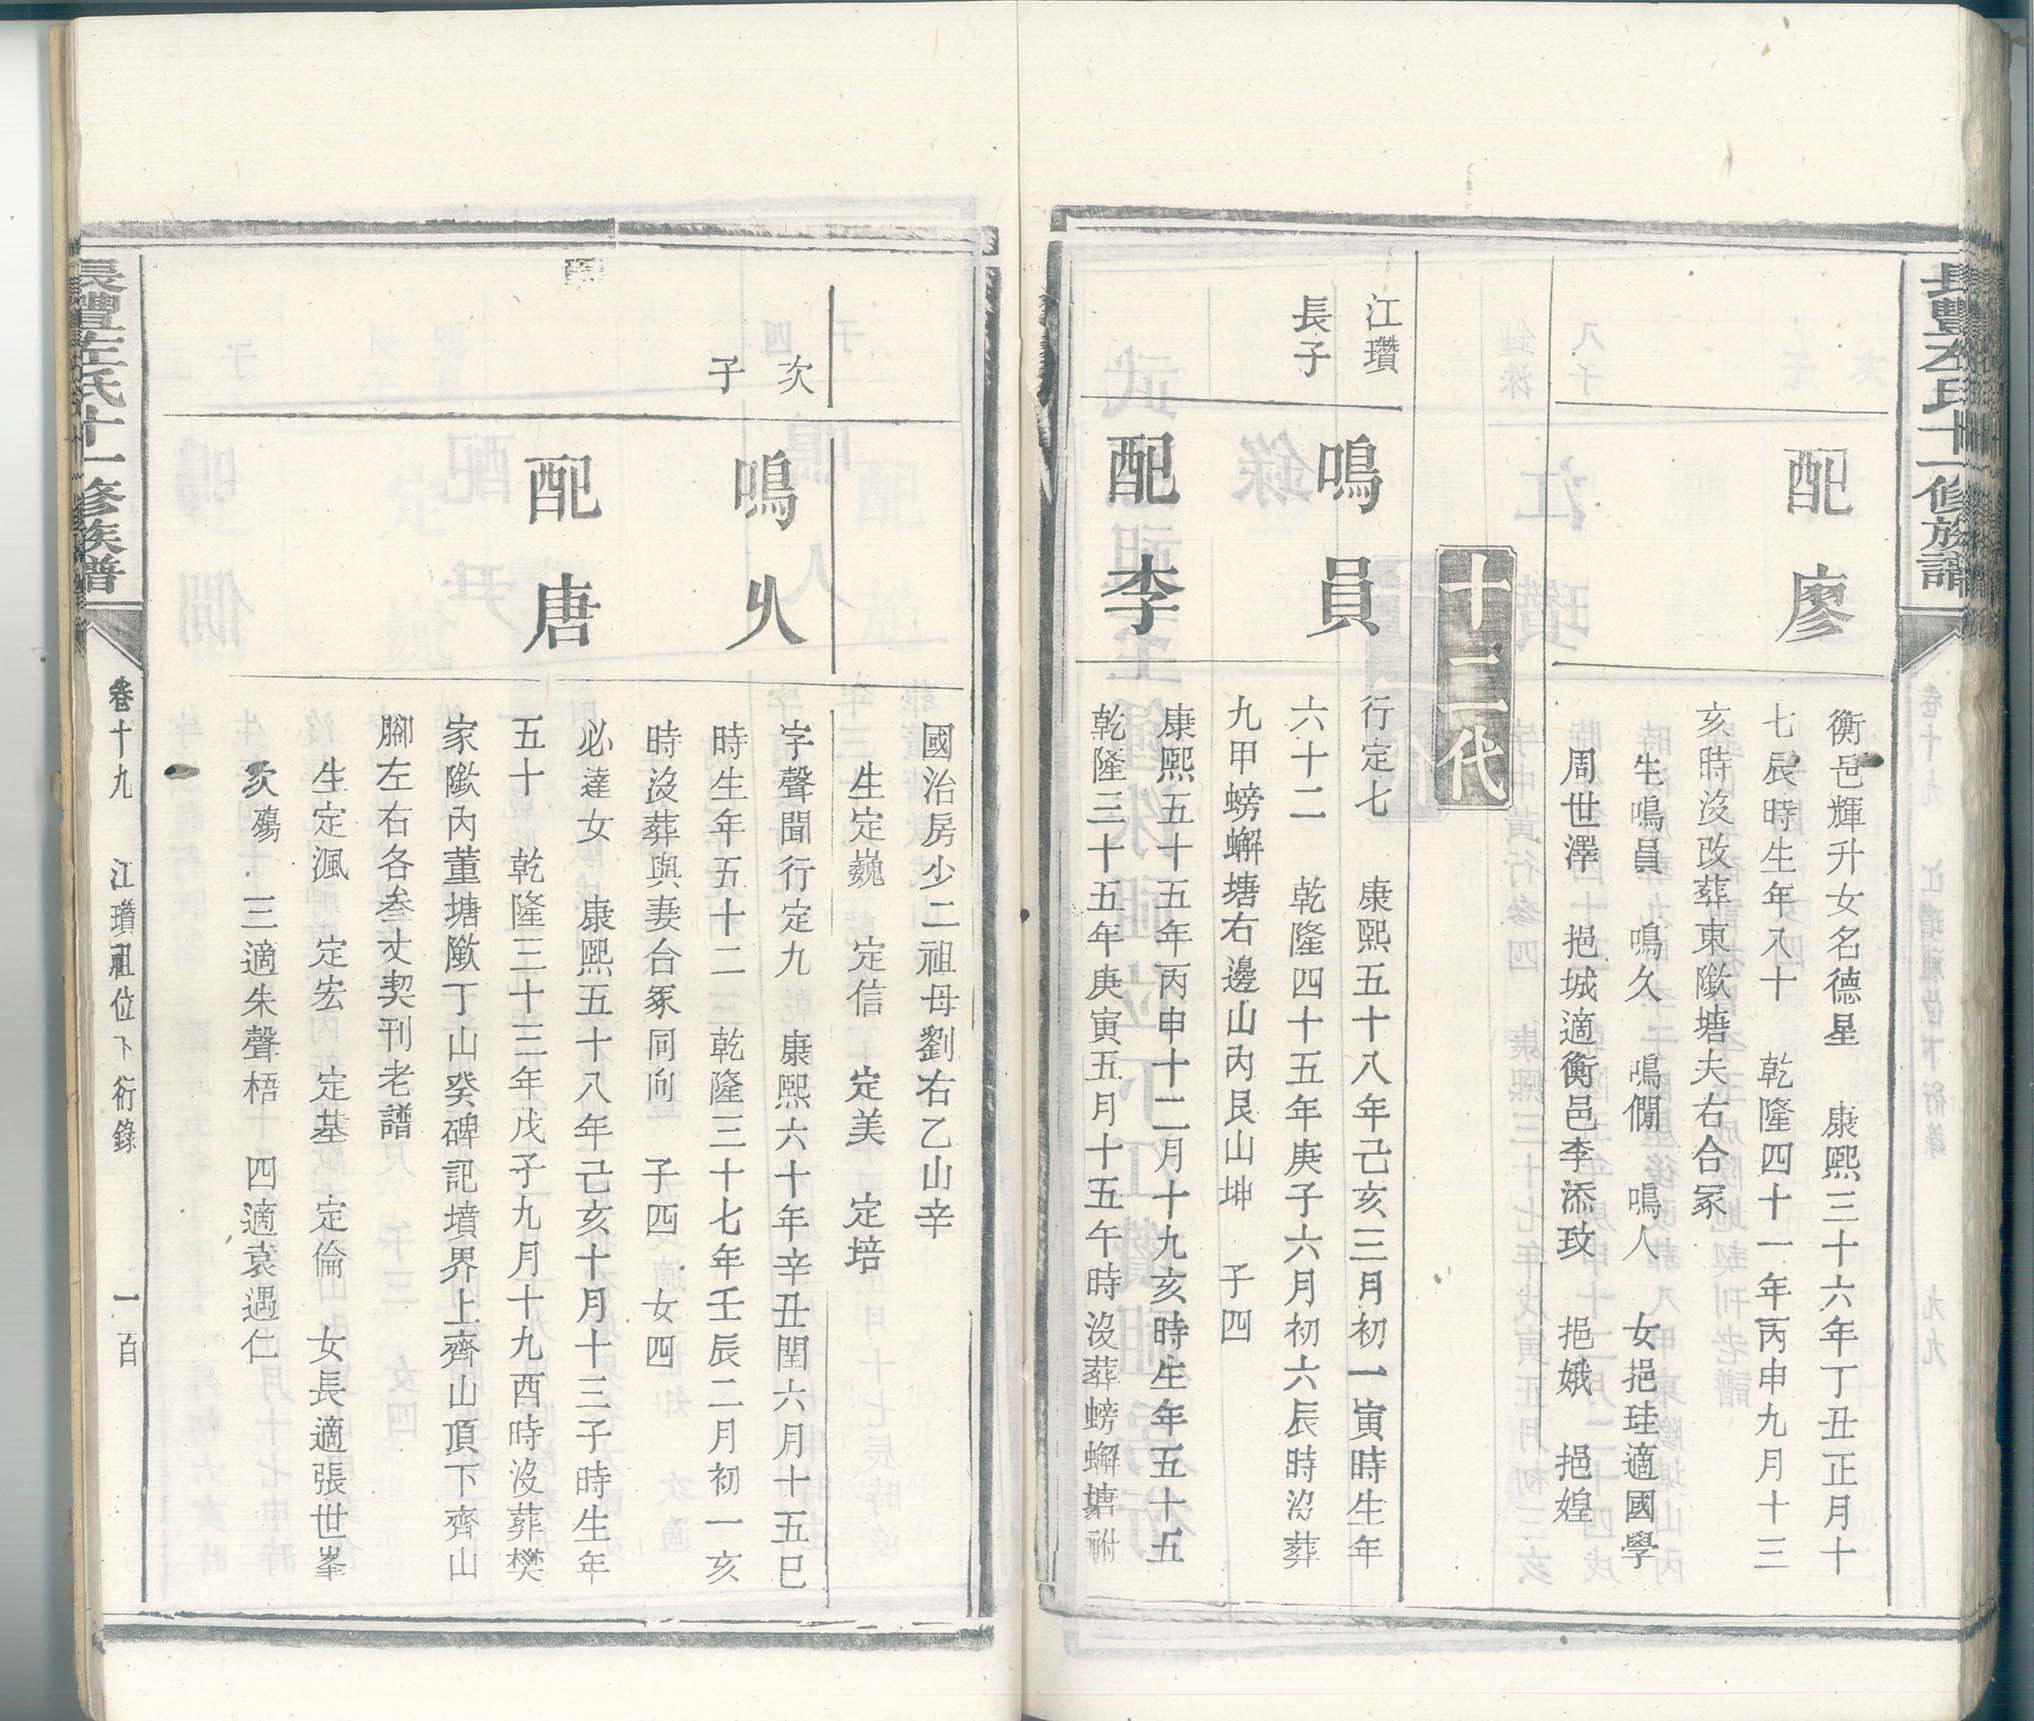 長豐左氏十一修族譜
配廖
衡邑輝升女名德星　康熙三十六年丁丑正月十
七辰時生年八十　乾隆四十一年丙申九月十三
亥時沒改葬東隞塘夫右合冢
生鳴員　鳴久　鳴僩　鳴人　女挹珪適國學
周世澤　挹城適衡邑李添玟　挹娥　挹媓
十二代
江瓚
長子
鳴員
行定七　康熙五十八年己亥三月初一寅時生年
六十二　乾隆四十五年庚子六月初六辰時沒葬
九甲螃蠏塘右邊山內艮山坤　子四
配李
康熙五十五年丙申十二月十九亥時生年五十五
乾隆三十五年庚寅五月十五午時沒葬螃蠏塘祔
國治房少二祖母劉右乙山辛
生定巍　定信　定美　定培
次
子
鳴久
字聲聞行定九　康熙六十年辛丑閏六月十五巳
時生年五十二　乾隆三十七年壬辰二月初一亥
時沒葬與妻合冢同向　子四　女四
配唐
必達女　康熙五十八年己亥十月十三子時生年
五十　乾隆三十三年戊子九月十九酉時沒葬樊
家隞內董塘隞丁山癸碑記墳界上齊山頂下齊山
腳左右各叁丈契刊老譜
生定渢　定宏　定基　定倫　女長適張世峯
次殤　三適朱聲梧　四適袁遇仁
長豐左氏十一修族譜
卷十九　江瓚祖位下衍錄　一百